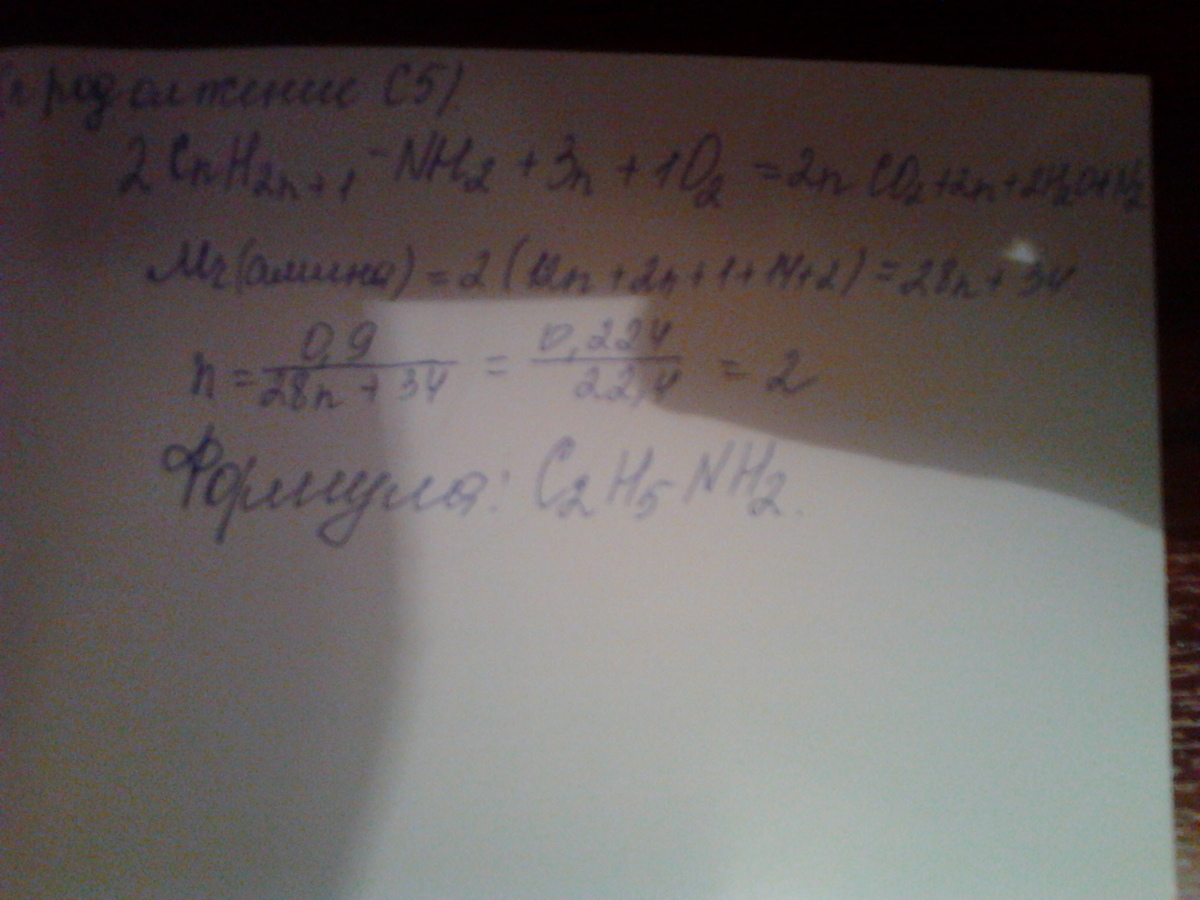 (продолжение C5)
2 CnH2n+1-NH2 + 3n + 1O2 = 2n CO2 + 2n + 2H2O + N2
Mr(амина) = 2 (12n + 2n + 1 + 14 + 2) = 28n + 34
n = 0,9/28n + 34 = 0,224/22,4 = 2
Формула: C2H5NH2.